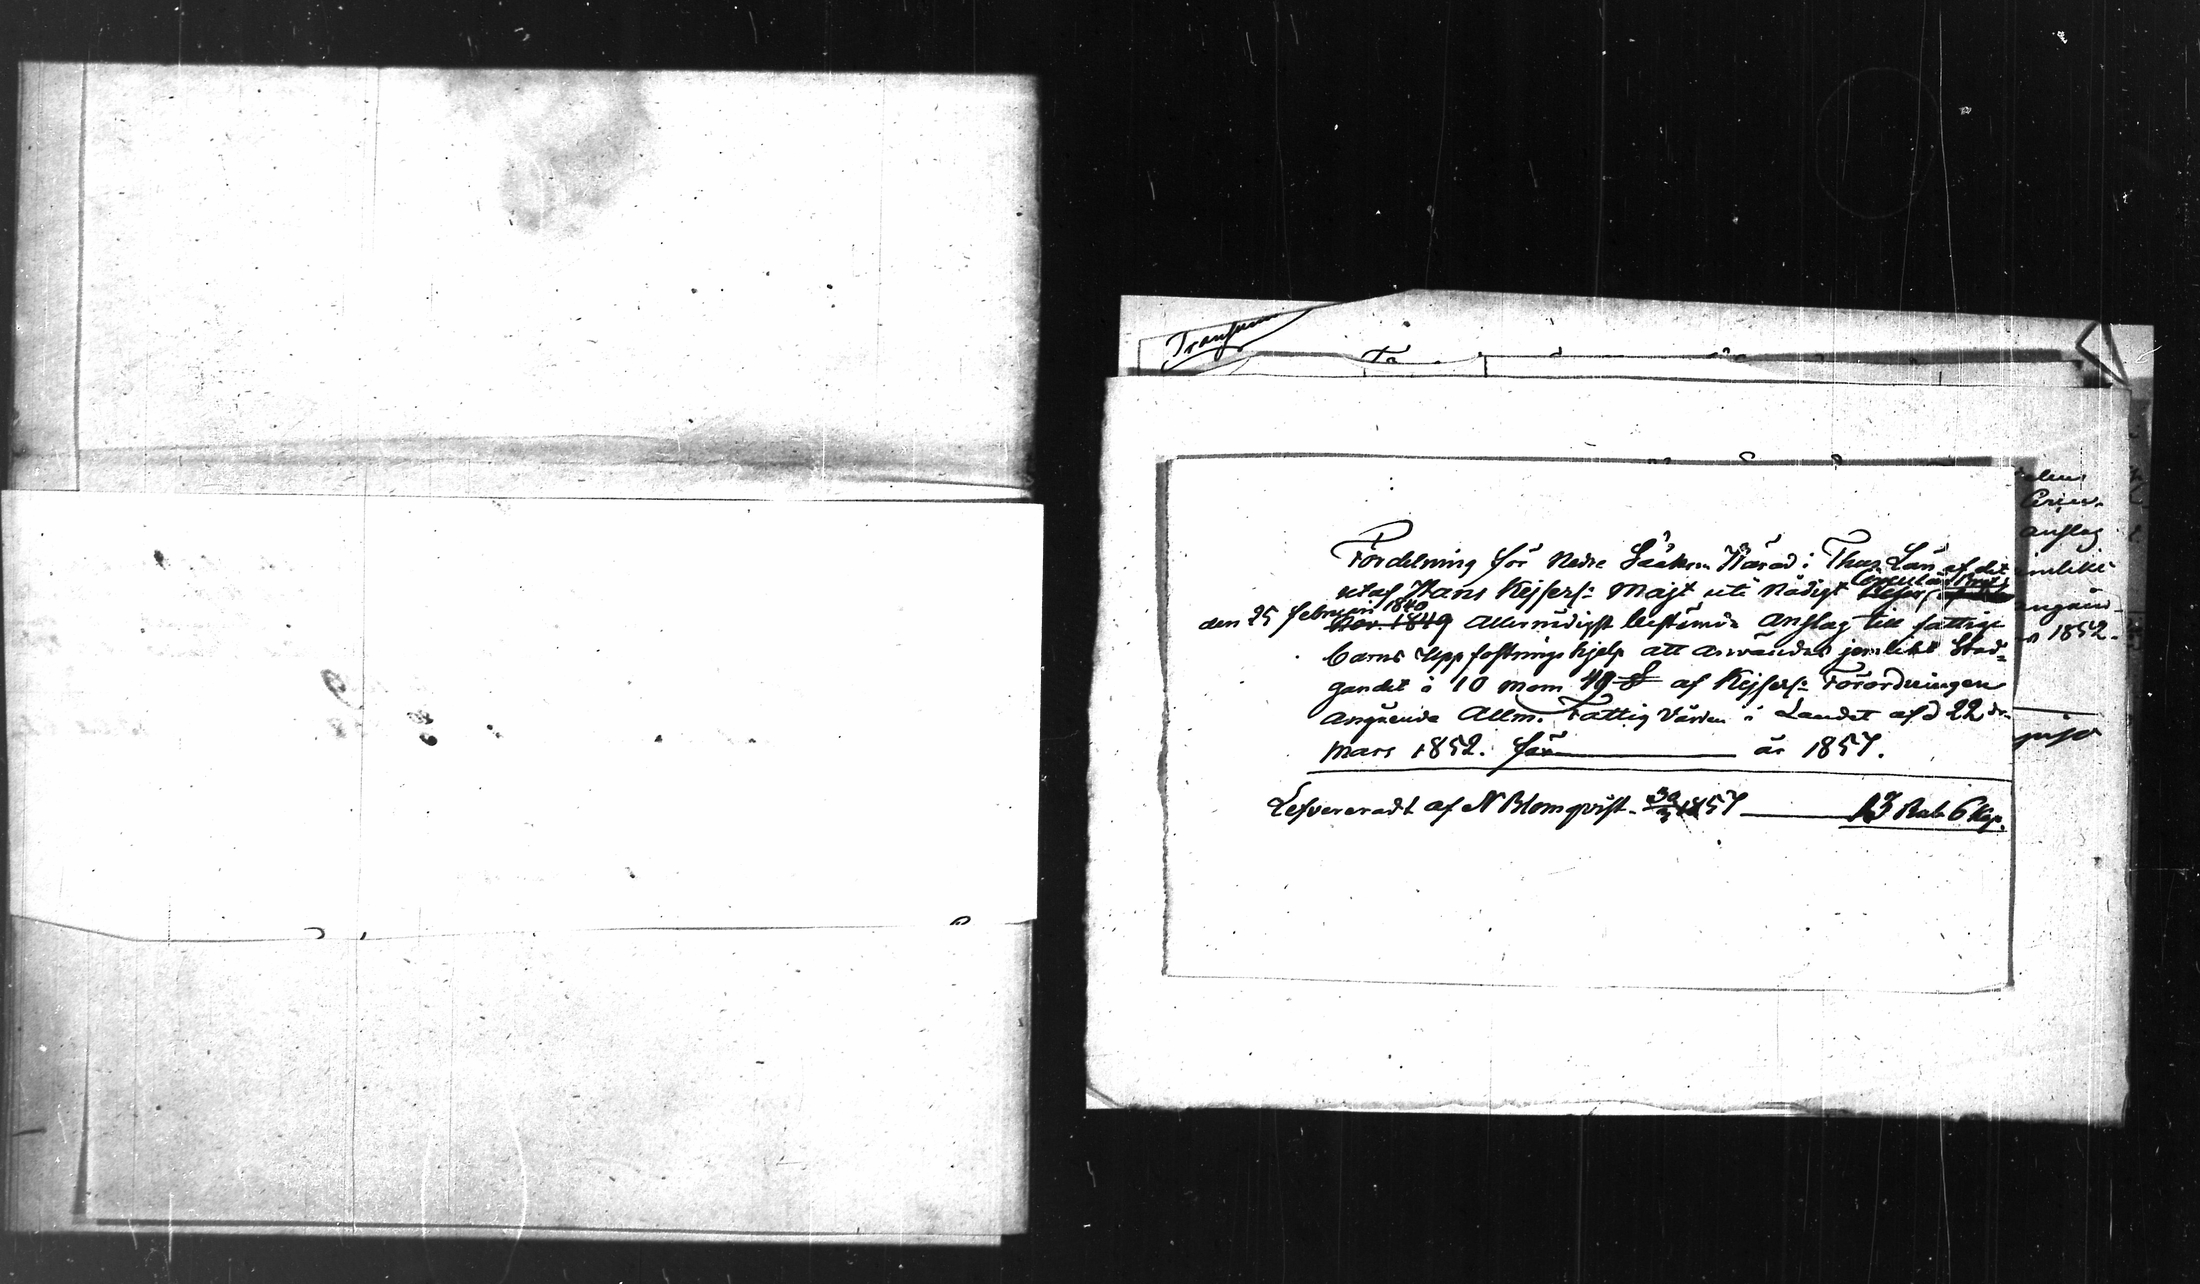 Transsum
Fördelning för Nedre Sääksm: Härad i Thus Län af det
utaf Hans Kejserl: Majt uti Nådigt Circulär Bref
den 25 februari 1840 Allernådigst bestämda Anslag till fattige
barns uppfostringshjelp att användas jemlikt Stad-
gandet i 10 mom 49 § af Kejserl: Förordningen
angående Allm. Fattig Vården i Landet af d 22 dr
Mars 1852. för år 1857.
Lefvereradt af N Blomqvist. 1857 13 Rub 6 Kop.
anslag
1852.